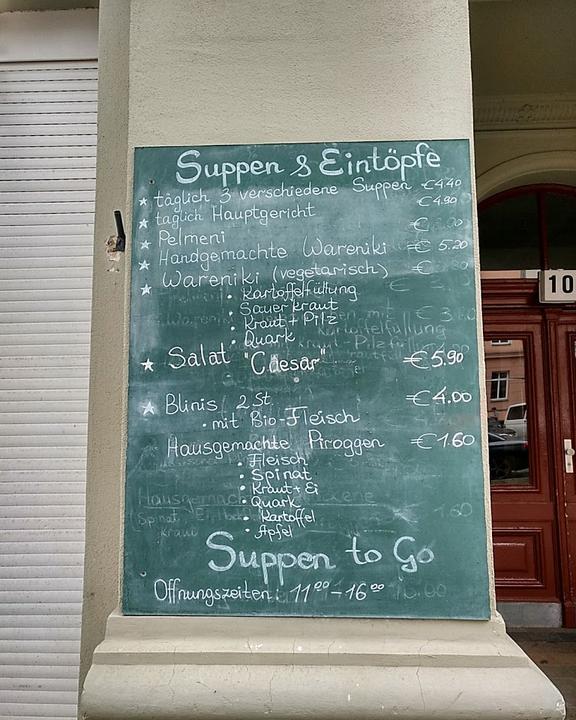 Suppen & Eintöpfe
täglich 3 verschiedene Suppen €4.40
täglich Hauptgericht €4.90
Pelmeni €
Handgemachte Wareniki € 5.20
Wareniki (vegetarisch) €
• Kartoffelfüllung
Sauerkraut
• Kraut + Pilz
• Quark
Salat "Caesar" €5.90
Blinis 2 St. €4.00
• mit Bio-Fleisch
Hausgemachte Piroggen €1.60
• Fleisch
• Spinat
• Kraut + Ei
• Quark
• Kartoffel
• Apfel
Suppen to Go
Öffnungszeiten: 11⁰⁰ – 16⁰⁰
10